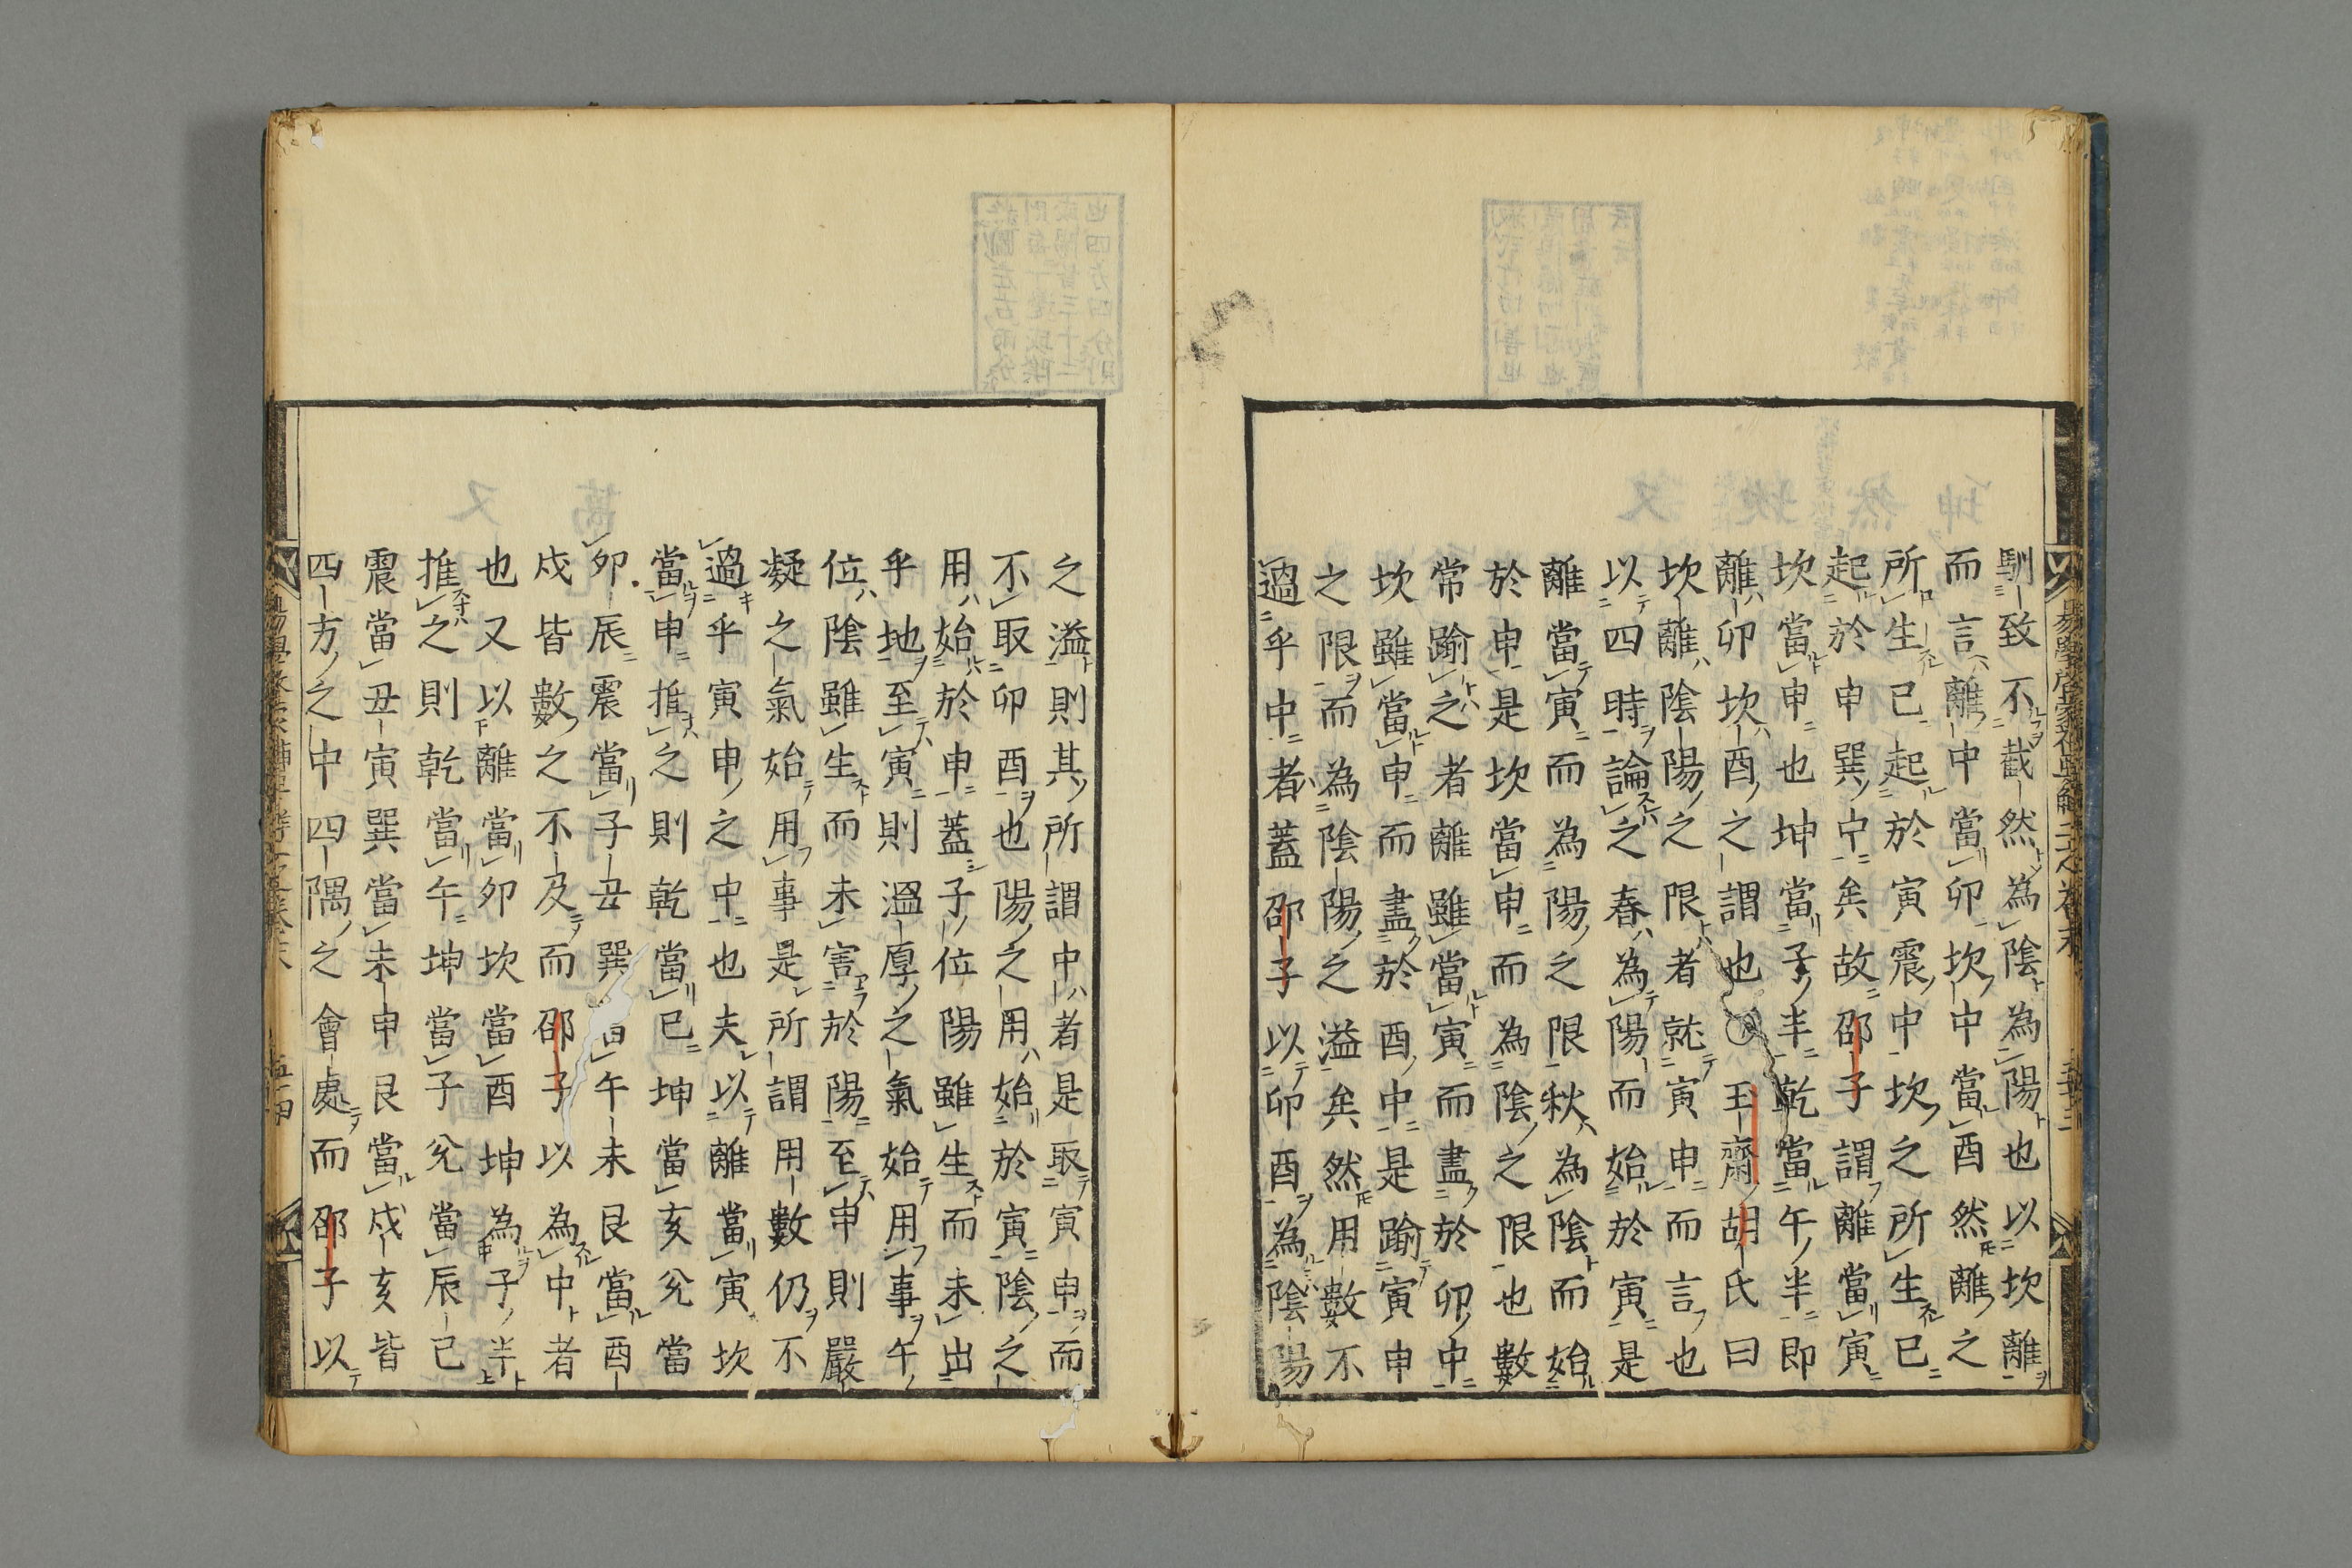 馴致不截然為陰為陽也以坎離
而言離中當卯坎中當酉然離之
所生已起於寅震中坎之所生已
起於申巽中矣故邵子謂離當寅
坎當申也坤當子半乾當午半即
離卯坎酉之謂也〇玉齋胡氏曰
坎離陰陽之限者就寅申而言也
以四時論之春為陽而始於寅是
離當寅而為陽之限秋為陰而始
於申是坎當申而為陰之限也數
常踰之者離雖當寅而盡於卯中
坎雖當申而盡於酉中是踰寅申
之限而為陰陽之溢矣然用數不
過乎中者蓋邵子以卯酉為陰陽
之溢則其所謂中者是取寅申而
不取卯酉也陽之用始於寅陰之
用始於申蓋子位陽雖生而未出
乎地至寅則溫厚之氣始用事午
位陰雖生而未害於陽至申則嚴
凝之氣始用事是所謂用數仍不
過乎寅申之中也夫以離當寅坎
當申推之則乾當已坤當亥兌當
卯辰震當子丑巽當午未艮當酉
戍皆數之不及而邵子以為中者
也又以離當卯坎當酉坤為子半
推之則乾當午坤當子兌當辰已
震當丑寅巽當未申艮當戍亥皆
四方之中四隅之會處而邵子以